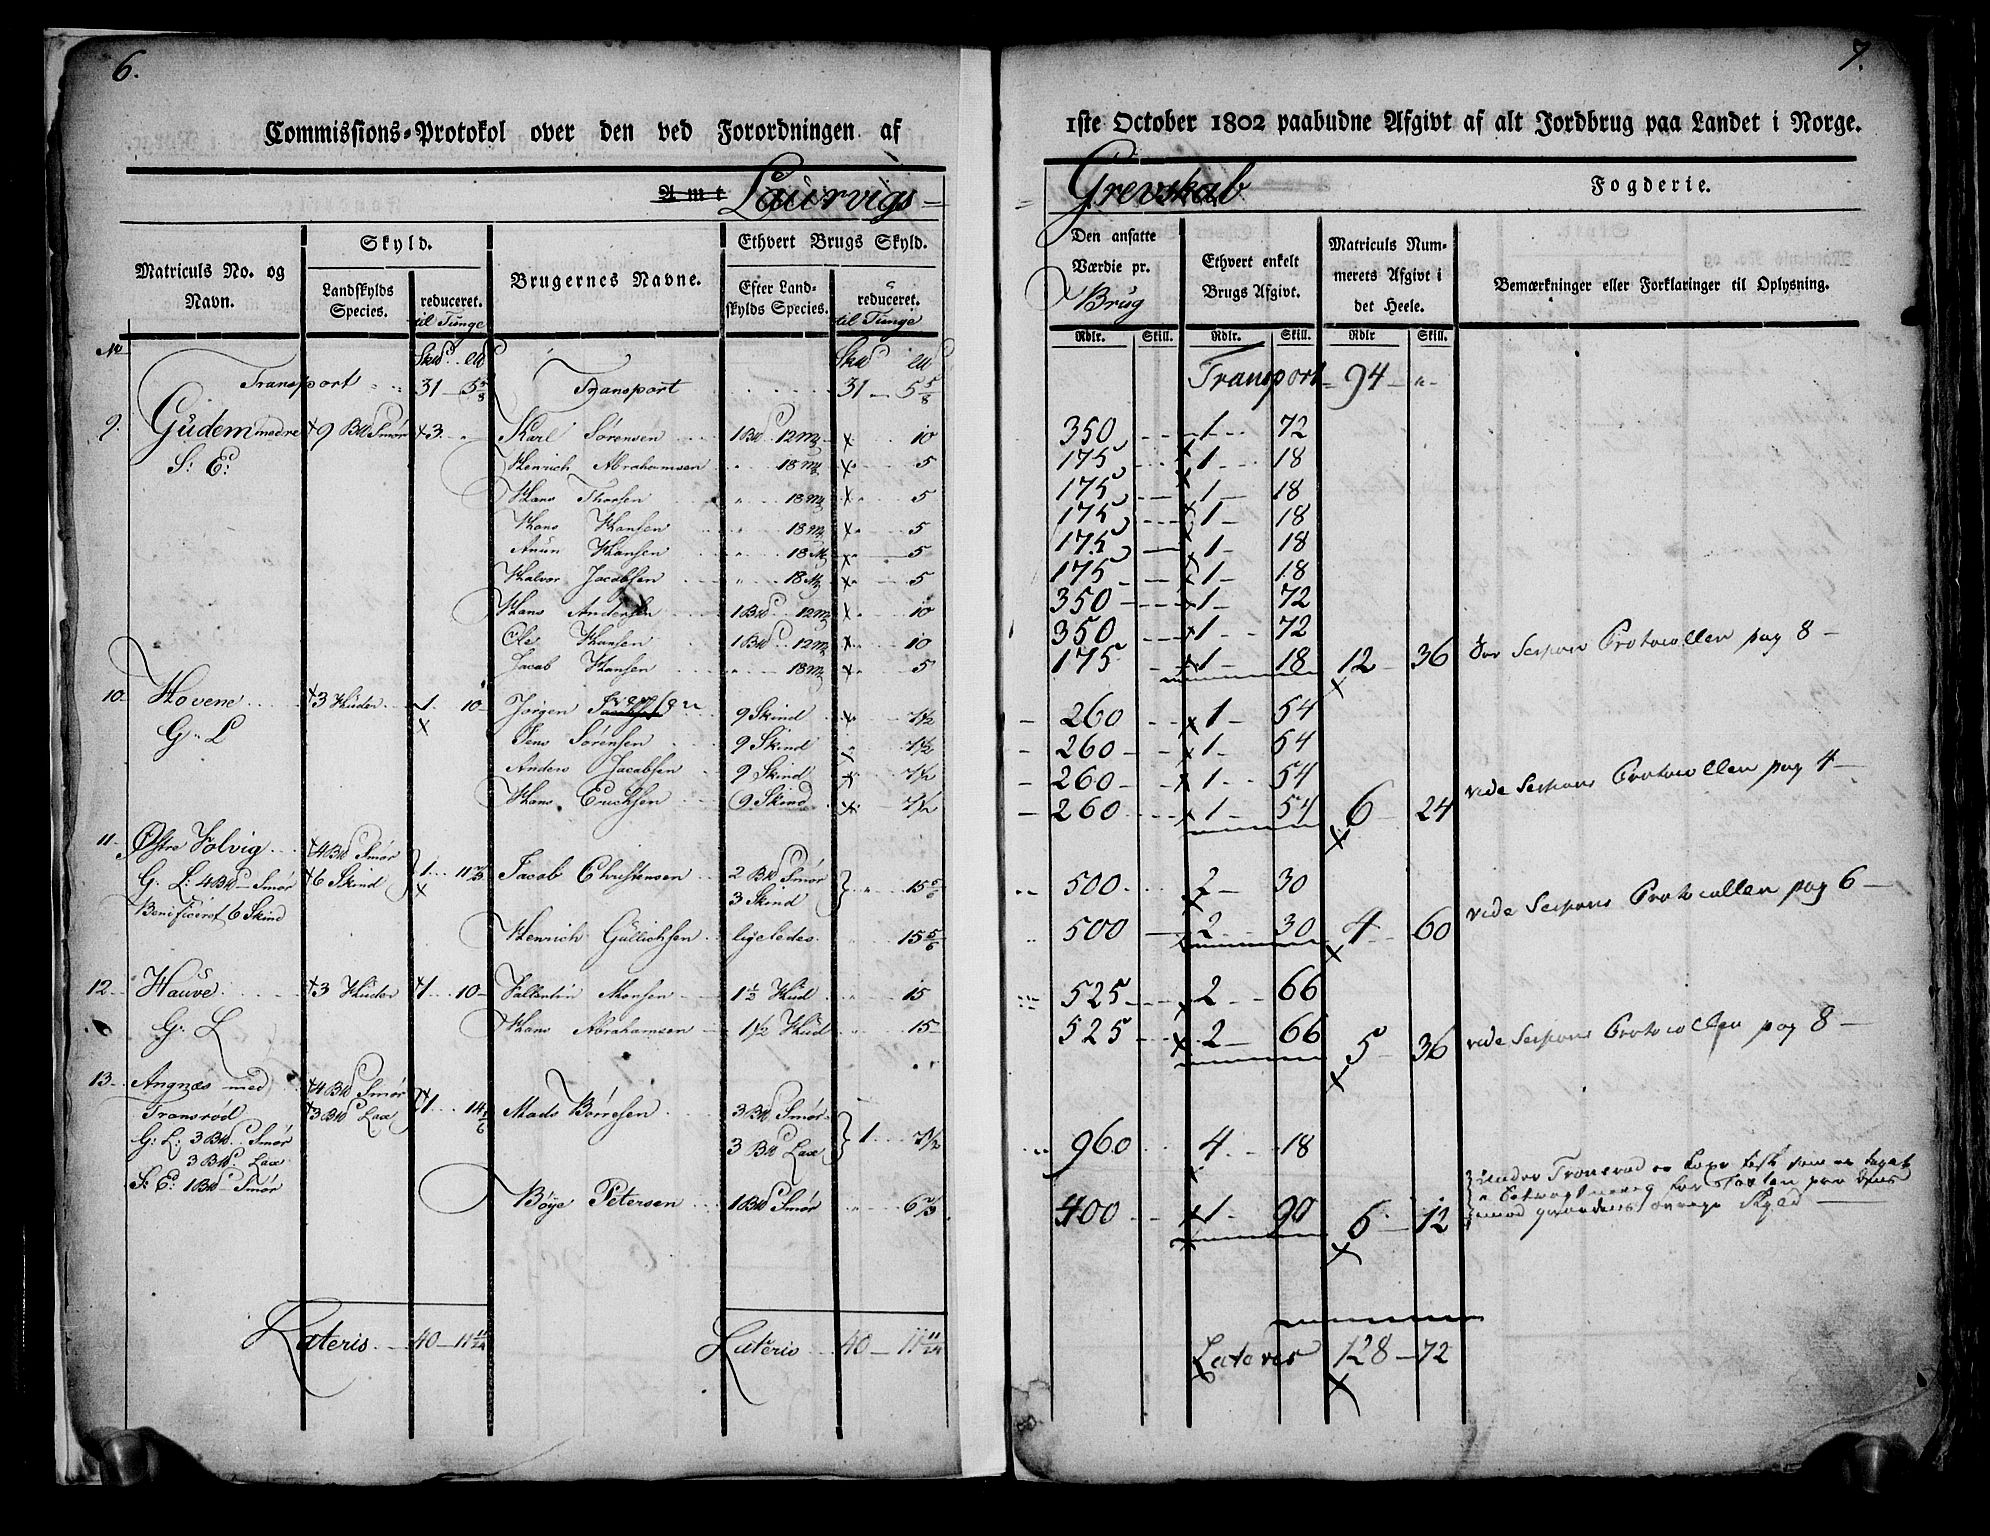 6.
Commissions-Protokol over den ved Forordningen af
Amt Laurvigs
Matriculs No. og Navn.
Skyld.
Landskylds Species.
reduceret. til Tunge
Brugernes Navne.
Ethvert Brugs Skyld.
Efter Landskylds Species.
reduceret. til Tunge
No
Skd Ld Skd Ld
Transport 31 5 5/8 Transport 31 5 5/8
9. Gudem nedre 9 Bd Smør 3 " Karl Sørensen 1 Bd 12 Mk " 10
S: E: Henrich Abrahamsen " 18 Mk " 5
Hans Thorsen " 18 Mk " 5
Hans Hansen " 18 Mk " 5
Anun Hansen " 18 Mk " 5
Halvor Jacobsen " 18 Mk " 5
Hans Andersen 1 Bd 12 Mk " 10
Ole Hansen 1 Bd 12 Mk " 10
Jacob Hansen " 18 Mk " 5
10. Hovene 3 Huder 1 10 Jørgen 9 Skind " 7 1/2
G. L Jens Sørensen 9 Skind " 7 1/2
Anders Jacobsen 9 Skind " 7 1/2
Hans Erichsen 9 Skind " 7 1/2
11. Østre Holvig 4 Bd Smør
G. L: 4 Bd Smør 6 Skind 1 11 2/3 Jacob Christensen 2 Bd Smør 3 Skind " 15 5/6
Benificeret 6 Skind
Henrich Gullichsen ligeledes " 15 5/6
12. Hauve 3 Huder 1 10 Vallentin Monsen 1 1/2 Hud " 15
G. L Hans Abrahamsen 1 1/2 Hud " 15
13. Angnæs med 4 Bd Smør
Transrød 3 Bd Lax 1 14 1/6 Mads Børresen 3 Bd Smør
G: L: 3 Bd Smør 3 Bd Lax 1 7 1/2
3 Bd Lax
S: E: 1 Bd Smør Böye Petersen 1 Bd Smør " 6 2/3
Lateris 40 11 11/24 Lateris 40 11 11/24
7.
1ste October 1802 paabudne Afgivt af alt Jordbrug paa Landet i Norge.
Grevskab Fogderie.
Den ansatte Værdie pr. Brug
Ethvert enkelt Brugs Afgivt.
Matriculs Nummerets Afgivt i det Heele.
Bemærkninger eller Forklaringer til Oplysning.
Rdlr. Skill. Rdlr. Skill. Rdlr Skill.
Transport 94 "
350 1 72
175 1 18
175 1 18
175 1 18
175 1 18
175 1 18
350 1 72
350 1 72
175 1 18 12 36 Protocollen pag 8
260 1 54
260 1 54
260 1 54
260 1 54 6 24 vide Sessions Protocollen pag 4
500 2 30
500 2 30 4 60 vide Sessions Protocollen pag 6
525 2 66
525 2 66 5 36 vide Sessions Protocollen pag 8
960 4 18
under Transrød er Laxe
400 1 90 6 12 Skyld
Lateris 128 72